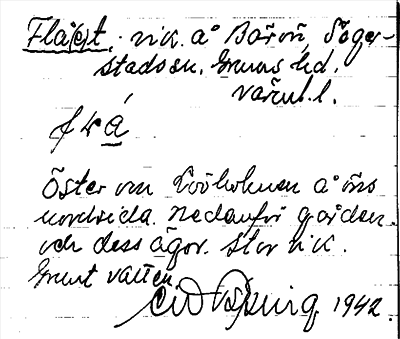 Flå(e)t, vik. å Barön, Söger-
stads sn. Grums hd.
Värml. l.
flå
Öster om Lövholmen å öns
nordsida. Nedanför gården
och dess ägor. Stor vik.
Grunt vatten.
1942.